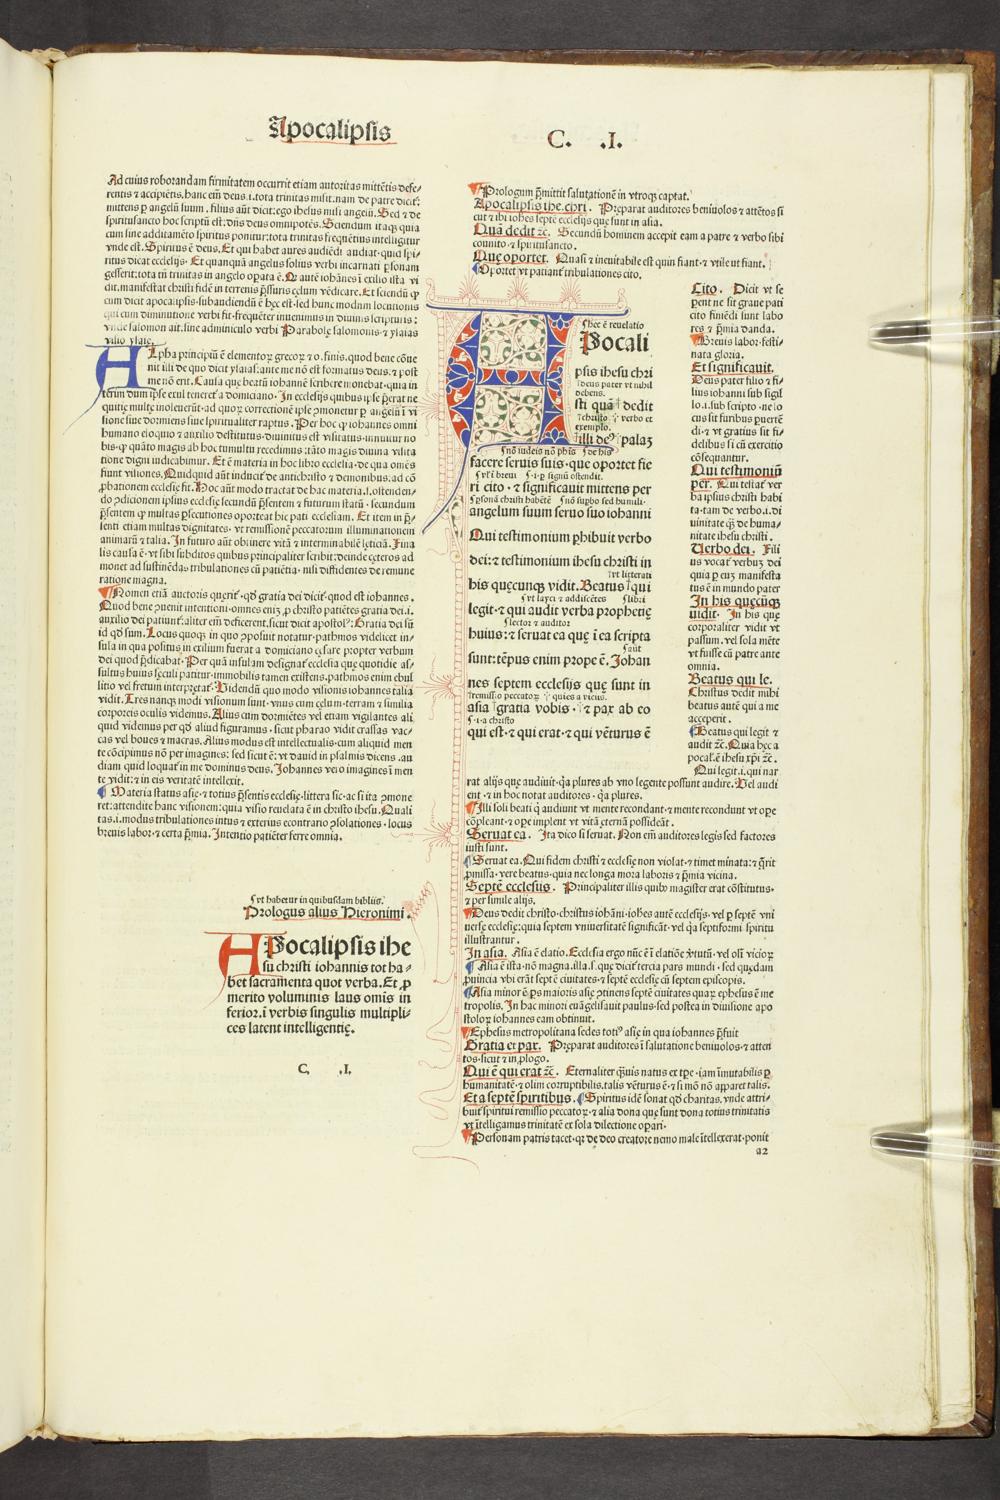 Apocalipsis
C. .I.
Ad cuius roborandam firmitatem occurrit etiam autoritas mittẽtis defe⸗
rentis ⁊ accipiẽtis. hanc em̃ deus .i. tota trinitas misit. nam de patre dicit̃:
mittens p̱ angelũ suum. filius aũt dicit: ego ihesus misi angelũ. Sed ⁊ de
spiritusancto hoc scriptũ est. dns deus omnipotẽs. Sciendum itaq̃ quia
cum sine additamẽto spiritus ponitur: tota trinitas frequẽtius intelligitur
vnde est. Spiritus ẽ deus. Et qui habet aures audiẽdi audiat quid spi⸗
ritus dicat ecclesijs. Et quanquã angelus solius verbi incarnati p̱sonam
gesserit: tota tñ trinitas in angelo opata ẽ. Q autẽ iohãnes ĩ exilio ista vi
dit. manifestat christi fidẽ in terrenis p̃ssuris cęlum vẽdicare. Et sciendũ ꝙ
cum dicit apocalipsis. subaudiendũ ẽ hęc est. sed hunc modum locutionis
qui cum diminutione verbi fit. frequẽter inuenimus in diuinis scripturis:
vnde salomon ait. sine adminiculo verbi Parabolę salomonis. ⁊ ysaias
visio ysaie.
Alpha principiũ ẽ elementoꝝ grecoꝝ ⁊ o. finis. quod bene cõue
nit illi de quo dicit ysaias. ante me nõ est formatus deus: ⁊ post
me nõ erit. Causa quę beatũ iohannẽ scribere monebat. quia in
terim dum ipse exul teneret̃ a domiciano. In ecclesijs quibus ipse p̃erat ne
quitię multę inoleuerũt. ad quoꝝ correctionẽ ipse p̃monetur p̱ angelũ ĩ vi
sione siue dormiens siue spiritualiter raptus. Per hoc ꝙ iohannes omni
humano eloquio ⁊ auxilio destitutus. diuinitus est visitatus. innuitur no
bis. ꝙ quãto magis ab hoc tumultu recedimus: tãto magis diuina visita
tione digni iudicabimur. Et ẽ materia in hoc libro ecclesia. de qua omẽs
fiunt visiones. Quidquid aũt inducit̃ de antichristo ⁊ demonibus. ad cõ
p̱bationem ecclesię fit. Hoc aũt modo tractat de hac materia .s. ostenden⸗
do ꝯdicionem ipsius ecclesię secundũ p̃sentem ⁊ futurum statũ. secundum
p̃sentem ꝙ multas p̱secutiones oporteat hic pati ecclesiam. Et item in p̃⸗
senti etiam multas dignitates. vt remissionẽ peccatorum illuminationem
animarũ ⁊ talia. In futuro aũt obtinere vitã ⁊ interminabilẽ lęticiã. Fina
lis causa ẽ. vt sibi subditos quibus principaliter scribit: deinde cęteros ad
monet ad sustinẽdas tribulationes cũ patiẽtia. nisi diffidentes de remune
ratione magna.
Nomen etiã auctoris querit̃. qd gratia dei dicit̃. quod est iohannes.
Quod bene ꝯuenit intentioni. omnes eniz ꝓ christo patiẽtes gratia dei .i.
auxilio dei patiunt̃: aliter em̃ deficerent. sicut dicit apostol⁹: Gratia dei sũ
id qd sum. Locus quoq̃ in quo ꝯposuit notatur. pathmos videlicet in⸗
sula in qua positus in exilium fuerat a domiciano cęsare propter verbum
dei quod p̃dicabat. Per quã insulam designat̃ ecclesia quę quotidie as⸗
sultus huius sęculi patitur. immobilis tamen existens. pathmos enim ebul
litio vel fretum interpretat̃. Videndũ quo modo visionis iohannes talia
vidit. Tres nanq̃ modi visionum sunt. vnus cum cęlum. terram ⁊ similia
corporeis oculis videmus. Alius cum dormiẽtes vel etiam vigilantes ali
quid videmus per qd aliud figuramus. sicut pharao vidit crassas vac⸗
cas vel boues ⁊ macras. Alius modus est intellectualis. cum aliquid men
te cõcipimus nõ per imagines: sed sicut ẽ: vt dauid in psalmis dicens. au
diam quid loquat̃ in me dominus deus. Johannes vero imagines ĩ men
te vidit: ⁊ in eis veritatẽ intellexit.
Materia status asię. ⁊ totius p̃sentis ecclesię. littera sic. ac si ita ꝯmone
ret: attendite hanc visionem: quia visio reuelata ẽ in christo ihesu. Quali
tas .i. modus tribulationes intus ⁊ exterius econtrario ꝯsolationes. locus
breuis labor. ⁊ certa p̃mia. Intentio patiẽter ferre omnia.
vt habetur in quibusdam biblijs.
Prologus alius Hieronimi.
Apocalipsis ihe
su christi iohannis tot ha⸗
bet sacramenta quot verba. Et ꝓ
merito voluminis laus omĩs in
ferior. ĩ verbis singulis multipli⸗
ces latent intelligentię.
C. .I.
Prologum p̃mittit salutationẽ in vtroq̃ captat.
Apocalipsis ihe. chri. Pręparat auditores beniuolos ⁊ attẽtos si
cut ⁊ ibi iohes septẽ ecclesijs quę sunt in asia.
Quã dedit ⁊c̃. Secundũ hominem accepit eam a patre ⁊ verbo sibi
counito. ⁊ spiritusancto.
Quę oportet. Quasi ⁊ ineuitabile est quin fiant. ⁊ vtile vt fiant.
Oportet vt patiant̃ tribulationes cito.
hęc ẽ reuelatio
Apocali
psis ihesu chri
deus pater vt nihil
debens.
sti quã dedit
christo verbo et
exemplo.
illi de⁹ palaz
nõ iudeis nõ phis de his
facere seruis suis. que oportet fie
vt ĩ breui i. p̱ signũ ostendit.
ri cito. ⁊ significauit mittens per
p̱sonã christi habẽtẽ nõ suꝑbo sed humili.
angelum suum seruo suo iohanni
Qui testimonium phibuit verbo
dei: ⁊ testimonium ihesu christi in
vt litterati
his quęcunq̃ vidit. Beatus qui
vt layci ⁊ addiscẽtes libri
legit. ⁊ qui audit verba prophetię
lector ⁊ auditor
huius: ⁊ seruat ea quę ĩ ea scripta
sunt: tẽpus enim prope ẽ. Johan
nes septem ecclesijs quę sunt in
remissio peccatoꝝ quies a vicijs.
asia gratia vobis. ⁊ pax ab eo
.i. a christo
qui est. ⁊ qui erat. ⁊ qui vẽturus ẽ
Cito. Dicit vt se
pent ne sit graue pati
cito finiẽdi sunt labo
res ⁊ p̃mia danda.
Breuis labor. festi⸗
nata gloria.
Et significauit.
Deus pater filio ⁊ fi⸗
lius iohanni sub sigil
lo .i. sub scripto. ne lo
cus sit furibus puertẽ
di. ⁊ vt gratius sit fi⸗
delibus si cũ exercitio
cõsequantur.
Qui testimoniũ
per. Qui testat̃ ver
ba ipsius christi habi
ta. tam de verbo .i. di
uinitate q̃ de huma⸗
nitate ihesu christi.
Verbo dei. Fili
us vocat̃ verbuz dei
quia p̱ euz manifesta
tus ẽ in mundo pater
In his quęcũq̃
vidit. In his quę
corporaliter vidit vt
passum. vel sola mẽte
vt fuisse cũ patre ante
omnia.
Beatus qui le.
Christus dedit mihi
beatus autẽ qui a me
acceperit.
Beatus qui legit ⁊
audit ⁊c̃. Quia hęc a
pocal. ẽ ihesu xp̃i ⁊c̃.
Qui legit .i. qui nar
rat alijs quę audiuit. q̃a plures ab vno legente possunt audire. Vel audi
ent. ⁊ in hoc notat auditores. q̃a plures.
Illi soli beati q̃ audiunt vt mente recondant. ⁊ mente recondunt vt ope
cõpleant. ⁊ ope implent vt vitã ęternã possideãt.
Seruat ea. Ita dico si seruat. Non em̃ auditores legis sed factores
iusti sunt.
Seruat ea. Qui fidem christi ⁊ ecclesię non violat. ⁊ timet minata: ⁊ q̃rit
ꝓmissa. vere beatus. quia nec longa mora laboris ⁊ p̃mia vicina.
Septẽ ecclesijs. Principaliter illis quibꝫ magister erat cõstitutus.
⁊ per simile alijs.
Deus dedit christo. christus iohãni. iohes autẽ ecclesijs. vel p̱ septẽ vni
uersę ecclesię: quia septem vniuersitatẽ significãt. vel q̃a septiformi spiritu
illustrantur.
In asia. Asia ẽ elatio. Ecclesia ergo nũc ẽ ĩ elatiõe ꝟtutũ. vel olĩ vicioꝝ
Asia ẽ ista. nõ magna. illa .s. que dicit̃ tercia pars mundi. sed quędam
ꝓuincia vbi erãt septẽ ciuitates. ⁊ septẽ ecclesię cũ septem episcopis.
Asia minor ẽ p̱s maioris asię ꝯtinens septẽ ciuitates quaꝝ ephesus ẽ me
tropolis. In hac minori euãgelisauit paulus. sed postea in diuisione apo
stoloꝝ iohannes eam obtinuit.
Ephesus metropolitana sedes toti⁹ asię in qua iohannes p̃fuit
Gratia et pax. Pręparat auditores ĩ salutatione beniuolos. ⁊ atten
tos. sicut ⁊ in ꝓlogo.
Qui ẽ qui erat ⁊c̃. Eternaliter q̃uis natus ex tp̃e. iam ĩmutabilis p̱
humanitatẽ. ⁊ olim corruptibilis. talis vẽturus ẽ. ⁊ si mõ nõ apparet talis.
Et a septẽ spiritibus. Spiritus idẽ sonat qd charitas. vnde attri⸗
buit̃ spiritui remissio peccatoꝝ. ⁊ alia dona quę sunt dona totius trinitatis
vt ĩtelligamus trinitatẽ ex sola dilectione opari.
Personam patris tacet. q̃ de deo creatore nemo male ĩtellexerat. ponit
a2